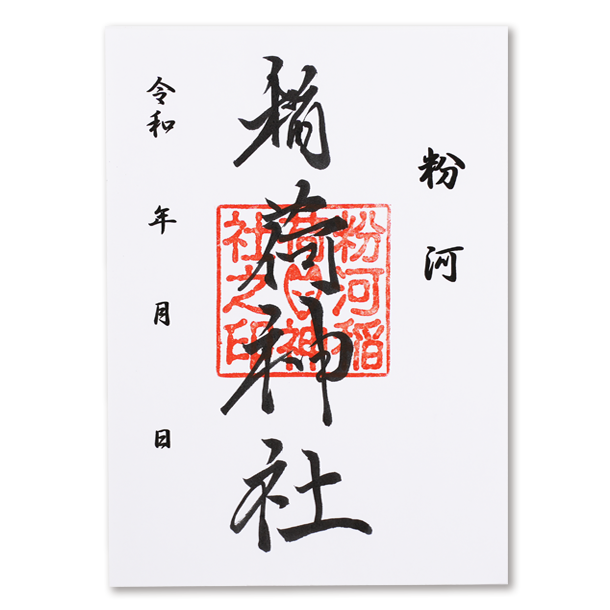 粉河
稲荷神社
粉河稲
荷神
社之印
令和 年 月 日